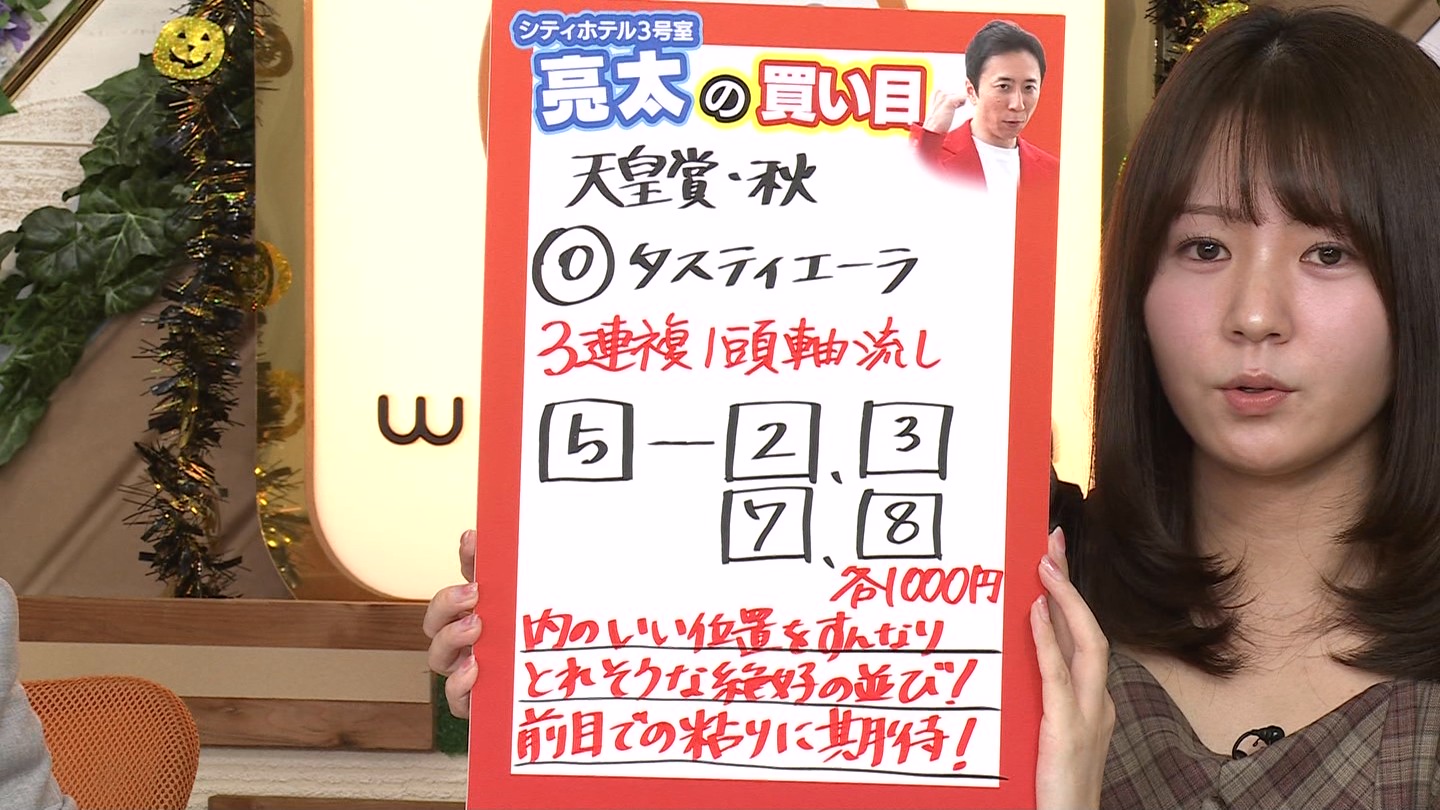 シティホテル3号室
亮太の買い目
天皇賞・秋
◎タスティエーラ
3連複1頭軸流し
5―2、3
7、8
各1000円
内のいい位置をすんなり
とれそうな絶好の並び!
前目での粘りに期待!